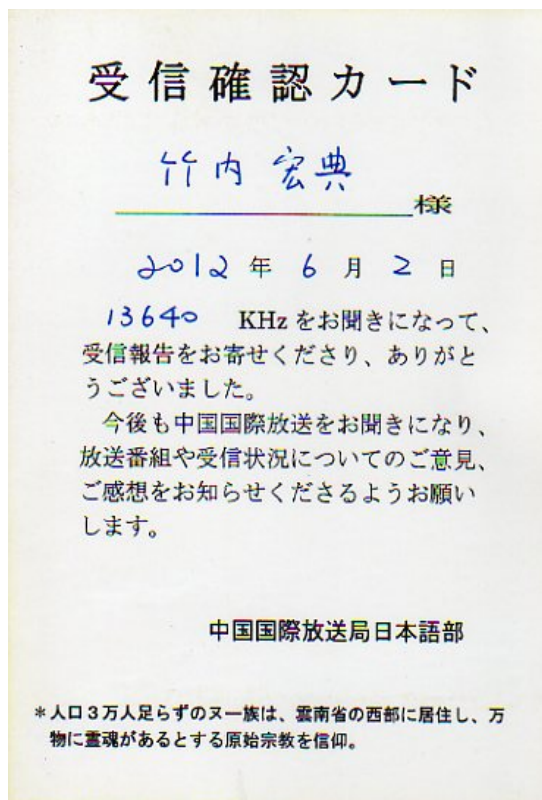 受信確認カード
竹内 宏典
様
2012 年 6 月 2 日
13640 KHz をお聞きになって、
受信報告をお寄せくださり、ありがと
うございました。
今後も中国国際放送をお聞きになり、
放送番組や受信状況についてのご意見、
ご感想をお知らせくださるようお願い
します。
中国国際放送局日本語部
*人口3万人足らずのヌー族は、雲南省の西部に居住し、万
物に霊魂があるとする原始宗教を信仰。